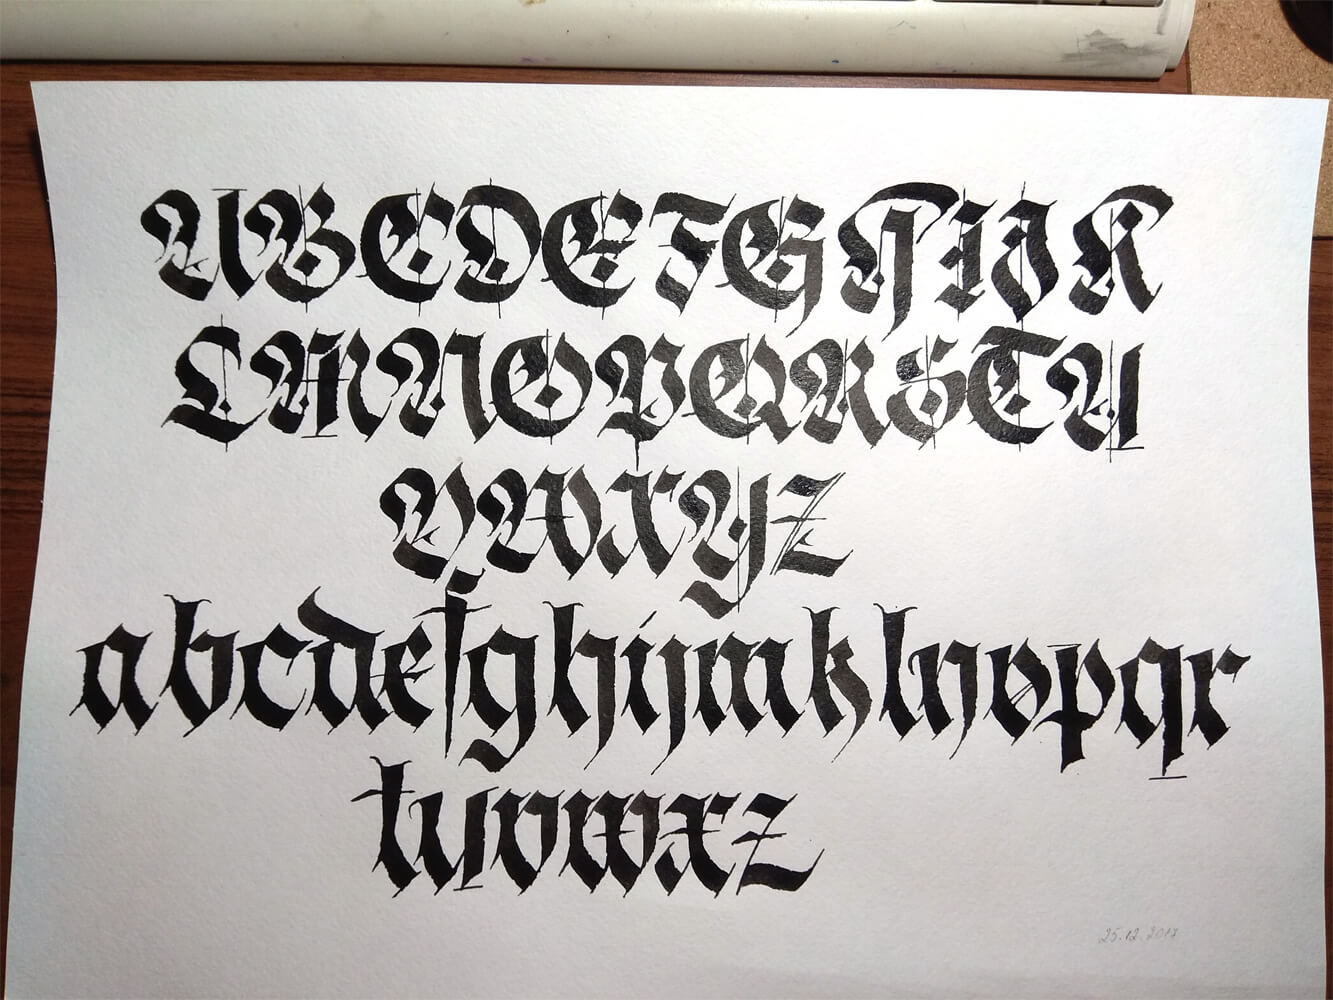 ABCDEFGHIJK
LMNOPQRSTU
VWXYZ
abcdefghijmklnopqr
tuvwxz
25.12.2017